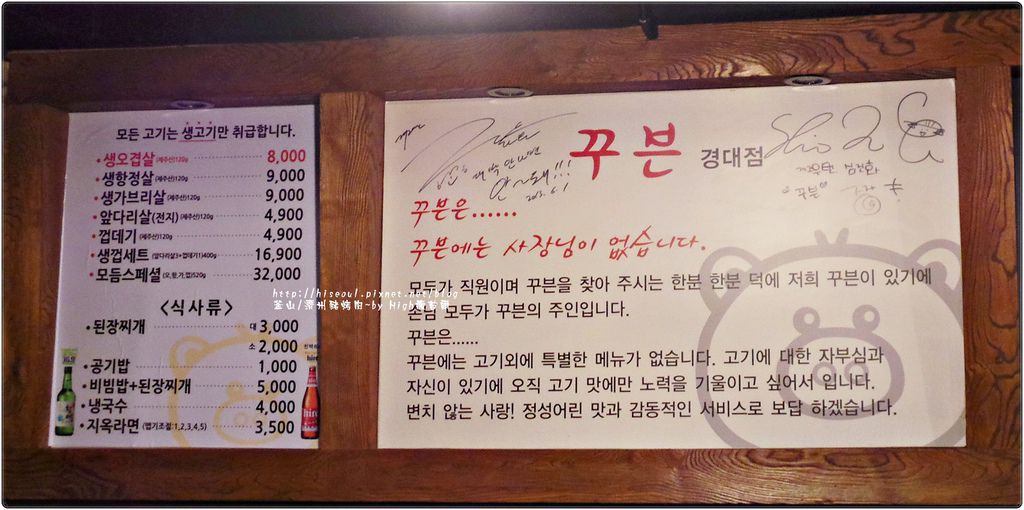 모든 고기는 생고기만 취급합니다.
• 생오겹살(제주산)120g 8,000
• 생항정살(제주산)120g 9,000
• 생가브리살(제주산)120g 9,000
• 앞다리살(전지)(제주산)120g 4,900
• 껍데기(제주산)120g 4,900
• 생껍세트(앞다리살3+껍데기1)400g 16,900
• 모듬스페셜(오,항,가,껍)520g 32,000
<식사류>
• 된장찌개 대 3,000
소 2,000
• 공기밥 1,000
• 비빔밥+된장찌개 5,000
• 냉국수 4,000
• 지옥라면 (맵기조절:1,2,3,4,5) 3,500
꾸븐 경대점
꾸븐은......
꾸븐에는 사장님이 없습니다.
모두가 직원이며 꾸븐을 찾아 주시는 한분 한분 덕에 저희 꾸븐이 있기에
손님 모두가 꾸븐의 주인입니다.
꾸븐은......
꾸븐에는 고기외에 특별한 메뉴가 없습니다. 고기에 대한 자부심과
자신이 있기에 오직 고기 맛에만 노력을 기울이고 싶어서 입니다.
변치 않는 사랑! 정성어린 맛과 감동적인 서비스로 보답 하겠습니다.
"꾸븐"
http://hiseoul.pixnet.net/blog